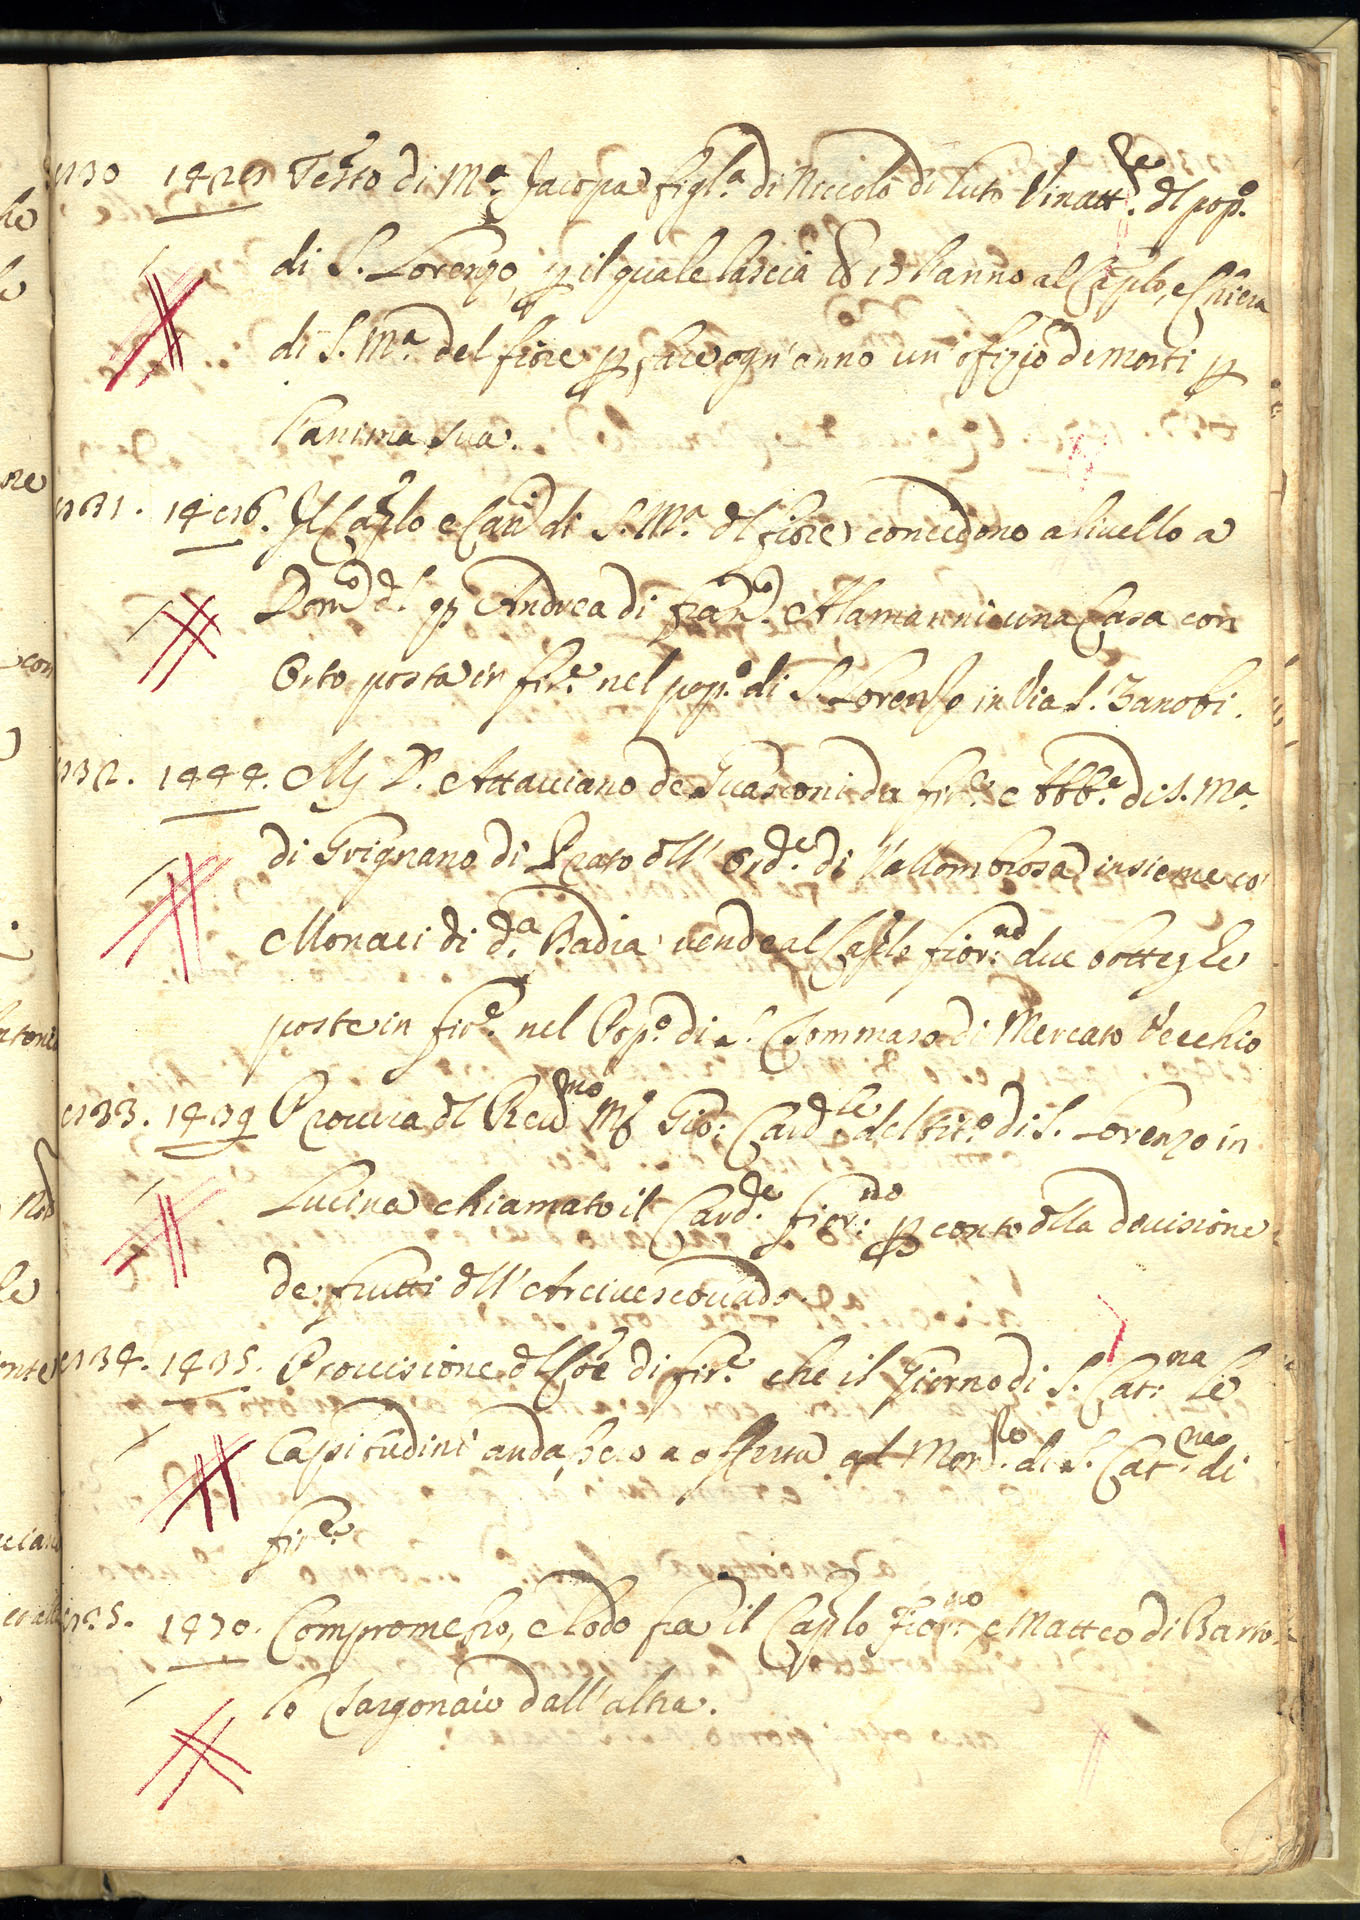 1130 1429 Testo di Mᵃ Jacopa figlᵃ di Niccolò di Luto Vinattʳᵉ dl popº
di S. Lorenzo, p il quale lascia 15 l'anno al Caplo, e Chiesa
di S. Mᵃ del fiore p fare ogn'anno un'ofizio de morti p
l'anima sua.
1131. 1406. Il Caplo e Can di S. Mᵃ dl fiore concedono a livello a
Domº d. Andrea di Franº. Alamanni una Casa con
Orto posta in firᵉ nel popº di S. Lorenzo in Via S. Zanobi.
1132. 1444. Mʃ D. Attaviano de Guasconi da firᵉ Abbᵉ di S. Mᵃ
di Grignano di Prato dll' Ordᵉ di Vallombrosa insieme co'
Monaci di dᵃ Badia vende al Caplo fiorⁿº due botteghe
poste in firᵉ nel Popº di S. Tommaso di Mercato Vecchio
1133. 1439 Procura dl Revᵐº Mʃ Gio: Cardˡᵉ del titº di S. Lorenzo in
Lucina chiamato il Cardᵉ fiorⁿº p conto dlla decisione
de frutti dll'Arcivescovado.
1134. 1435. Provisione dl Coe di firᵉ che il Giorno di S. Catⁿᵃ Le
Capitudini andassero a offerta al Monʳº di S. Catⁿᵃ di
firᵉ
1135. 1470. Compromesso, e Lodo fra il Caplo fiorⁿº e Matteo di Barto
lo Targonaio dall'altra.